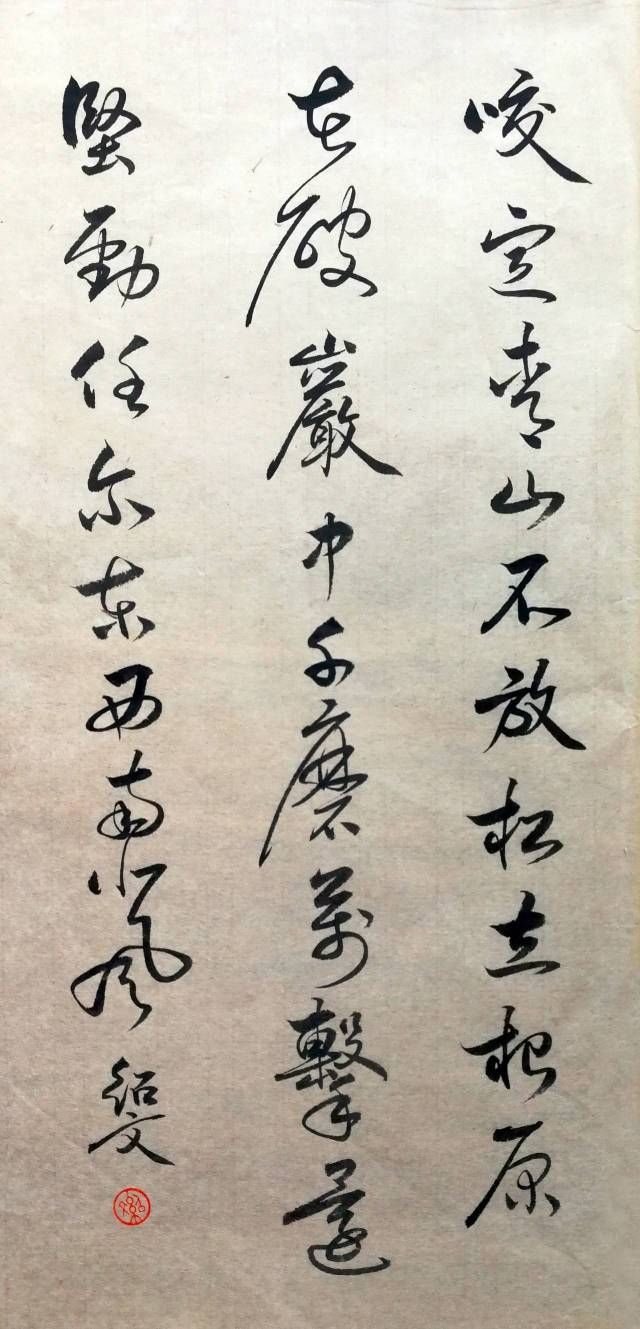 咬定青山不放松立根原
在破巖中千磨萬擊還
堅勁任尔东西南北风